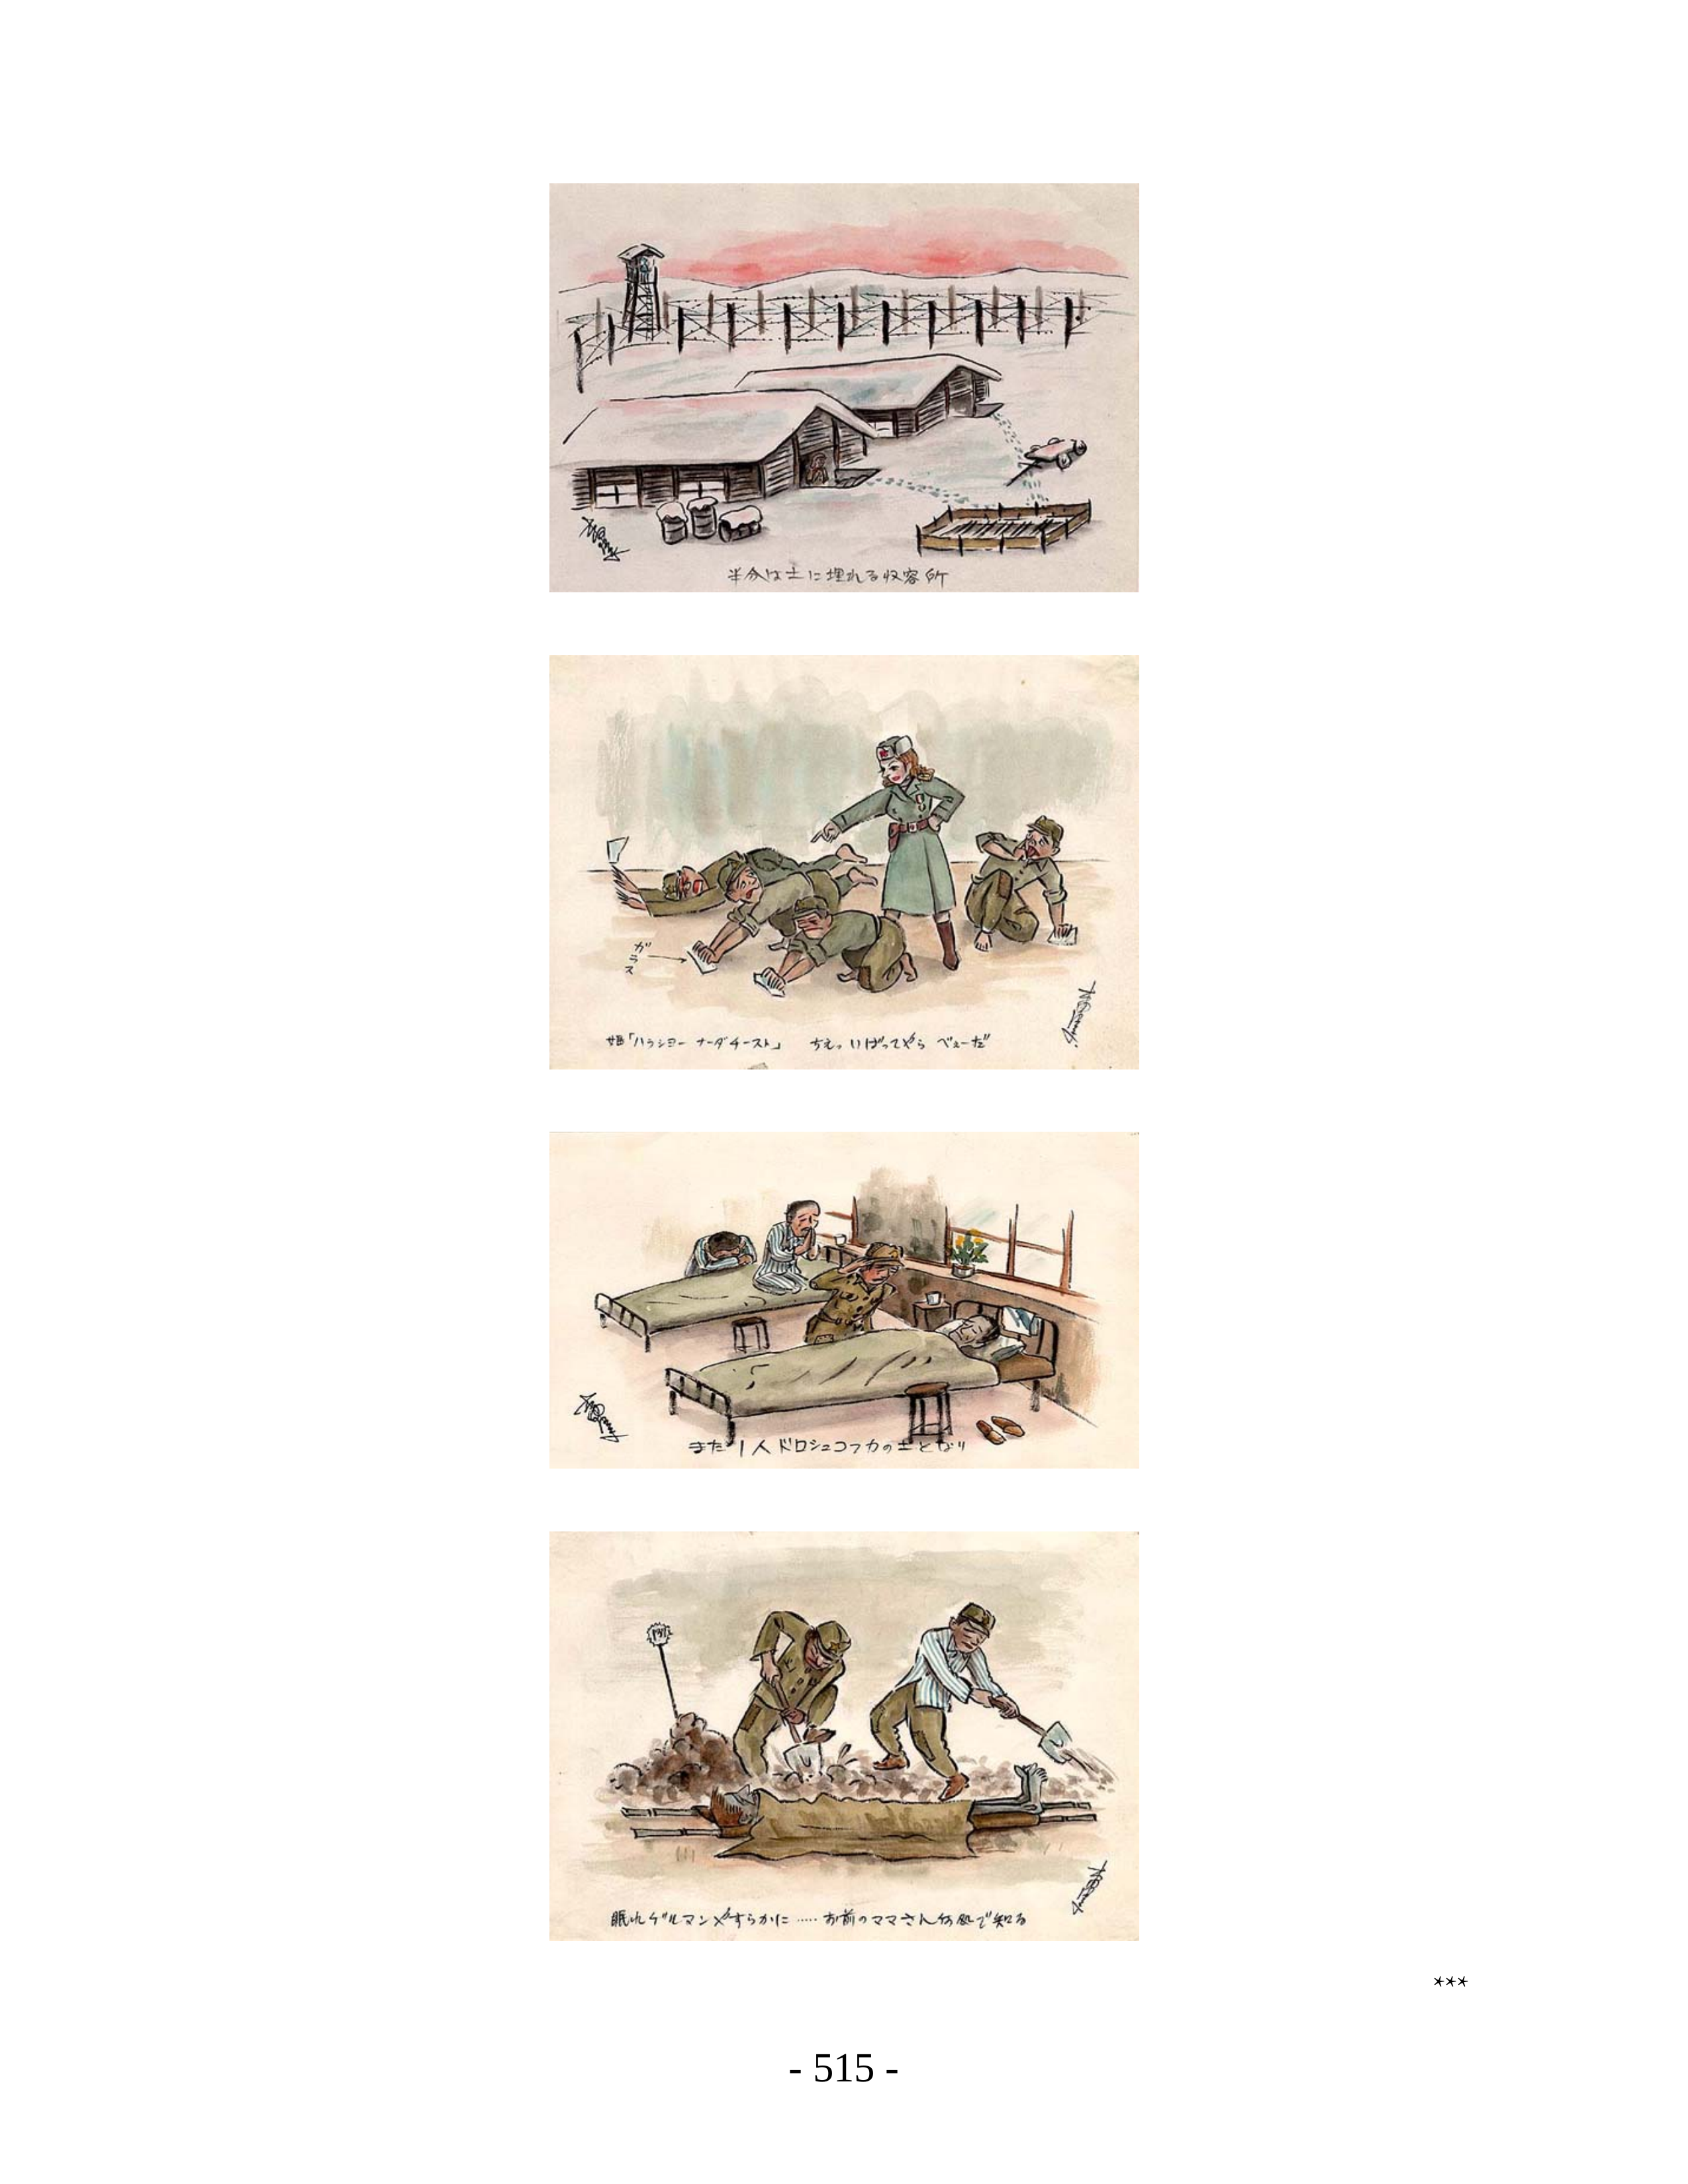 半分は土に埋れる収容所
ガラス
「ハラショー ナーダ チースト」 ちえっ いばってやら べえーだ
また1人ドロシュコフカの土となり
眠れゲルマンやすらかに……お前のママさん何処で知る
***
- 515 -